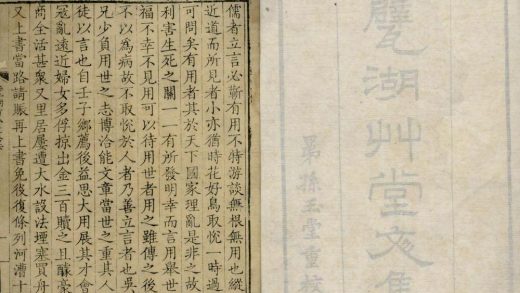 甓湖艸堂文集
弟孫玉堂重校
儒者立言必蘄有用不特游談無根無用也縱
近道而所見者小亦猶時花好鳥取悅一時過
可問矣有用者其於天下國家理亂是非之故
利害生死之關一一有所發明幸而言用舉世
福不幸不見用可以待用世者用之雖傳之後
不以為病故不取悅於人者乃善立言者也吳
兄少負用世之志博洽能文章當世之重其人
徒以言也自壬子鄉薦後益思大用展其才會
寇亂遠近婦女多俘掠出金三百贖之且醵豪
尚全活甚衆又里居屢遭大水設法堙塞買舟
又上書當路請賑再上書免役復條列河漕十